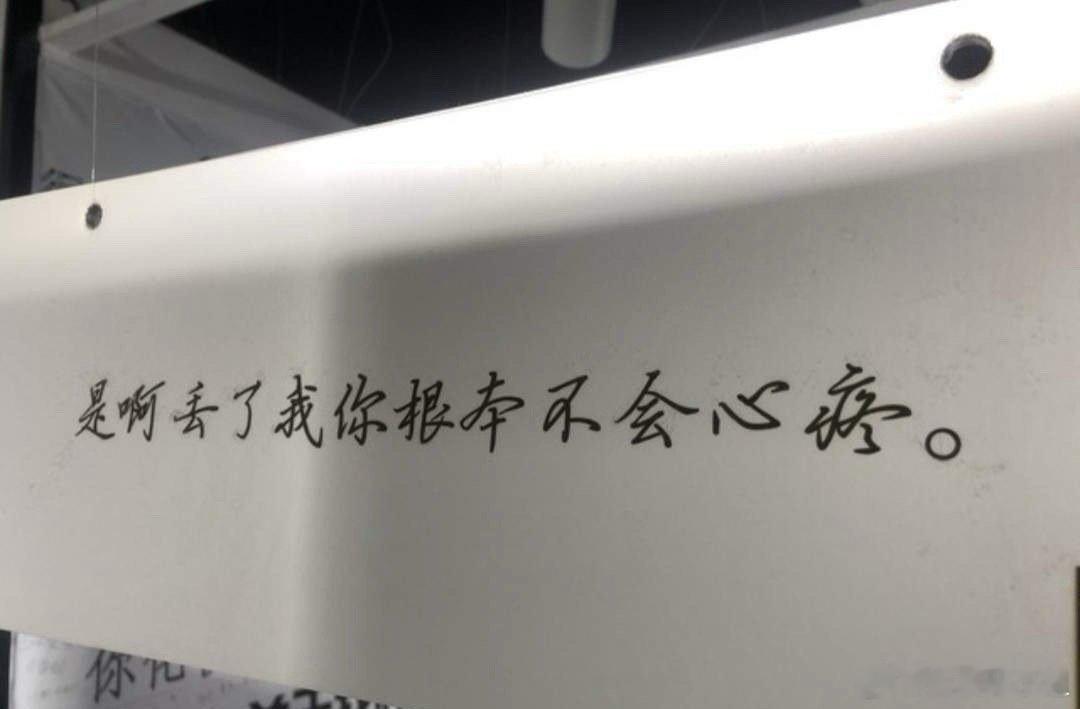 是啊丢了我你根本不会心疼。